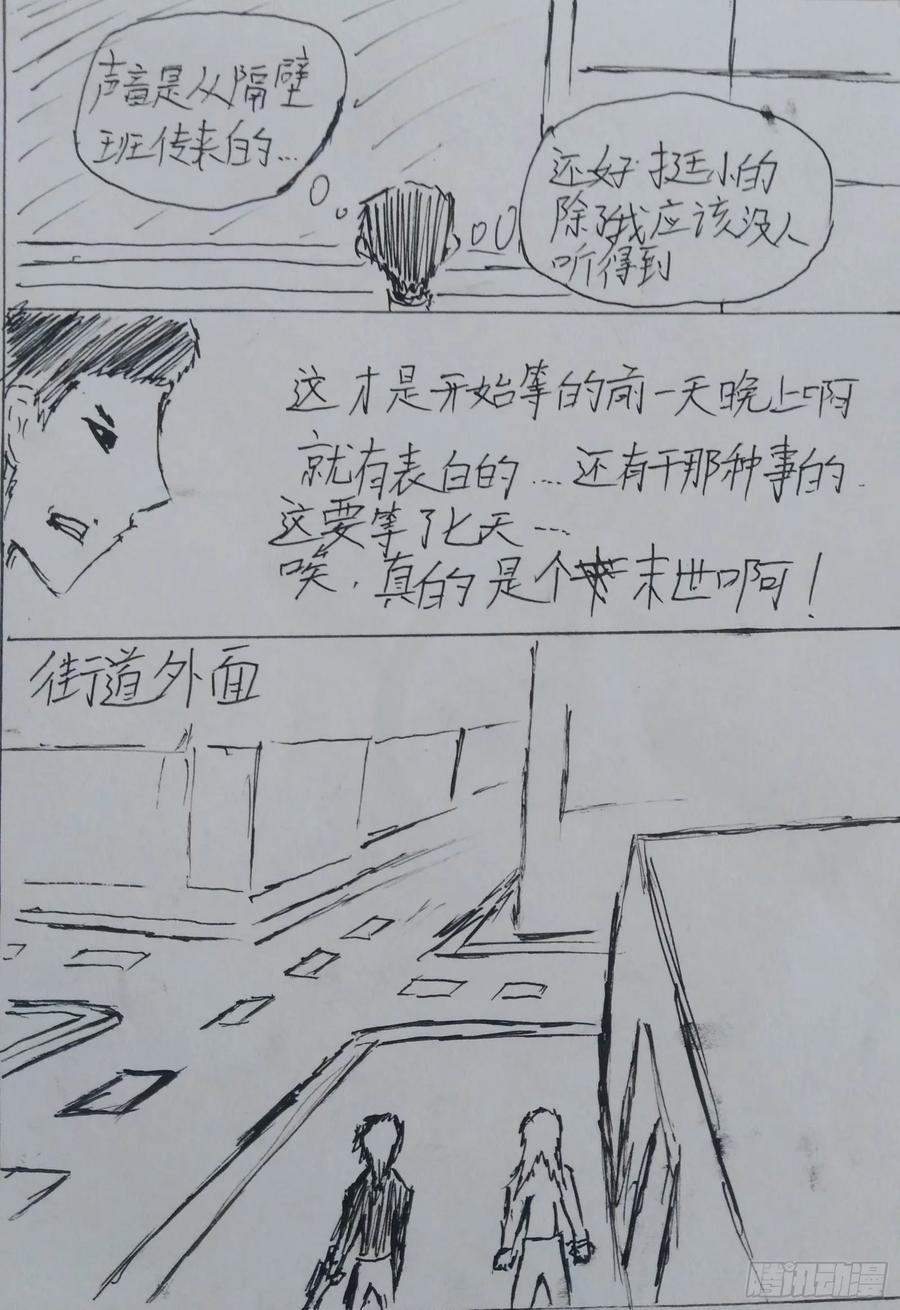 声音是从隔壁
班传来的...
还好挺小的
除了我应该没人
听得到
这才是开始等的前一天晚上啊
就有表白的...还有干那种事的
这要等了七天...
唉，真的是个末世啊！
街道外面
腾讯动漫